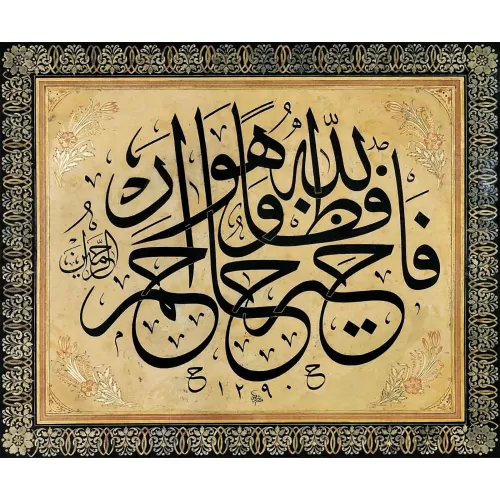 فالله خير حافظا وهو ارحم
الراحمين
١٢٩٠